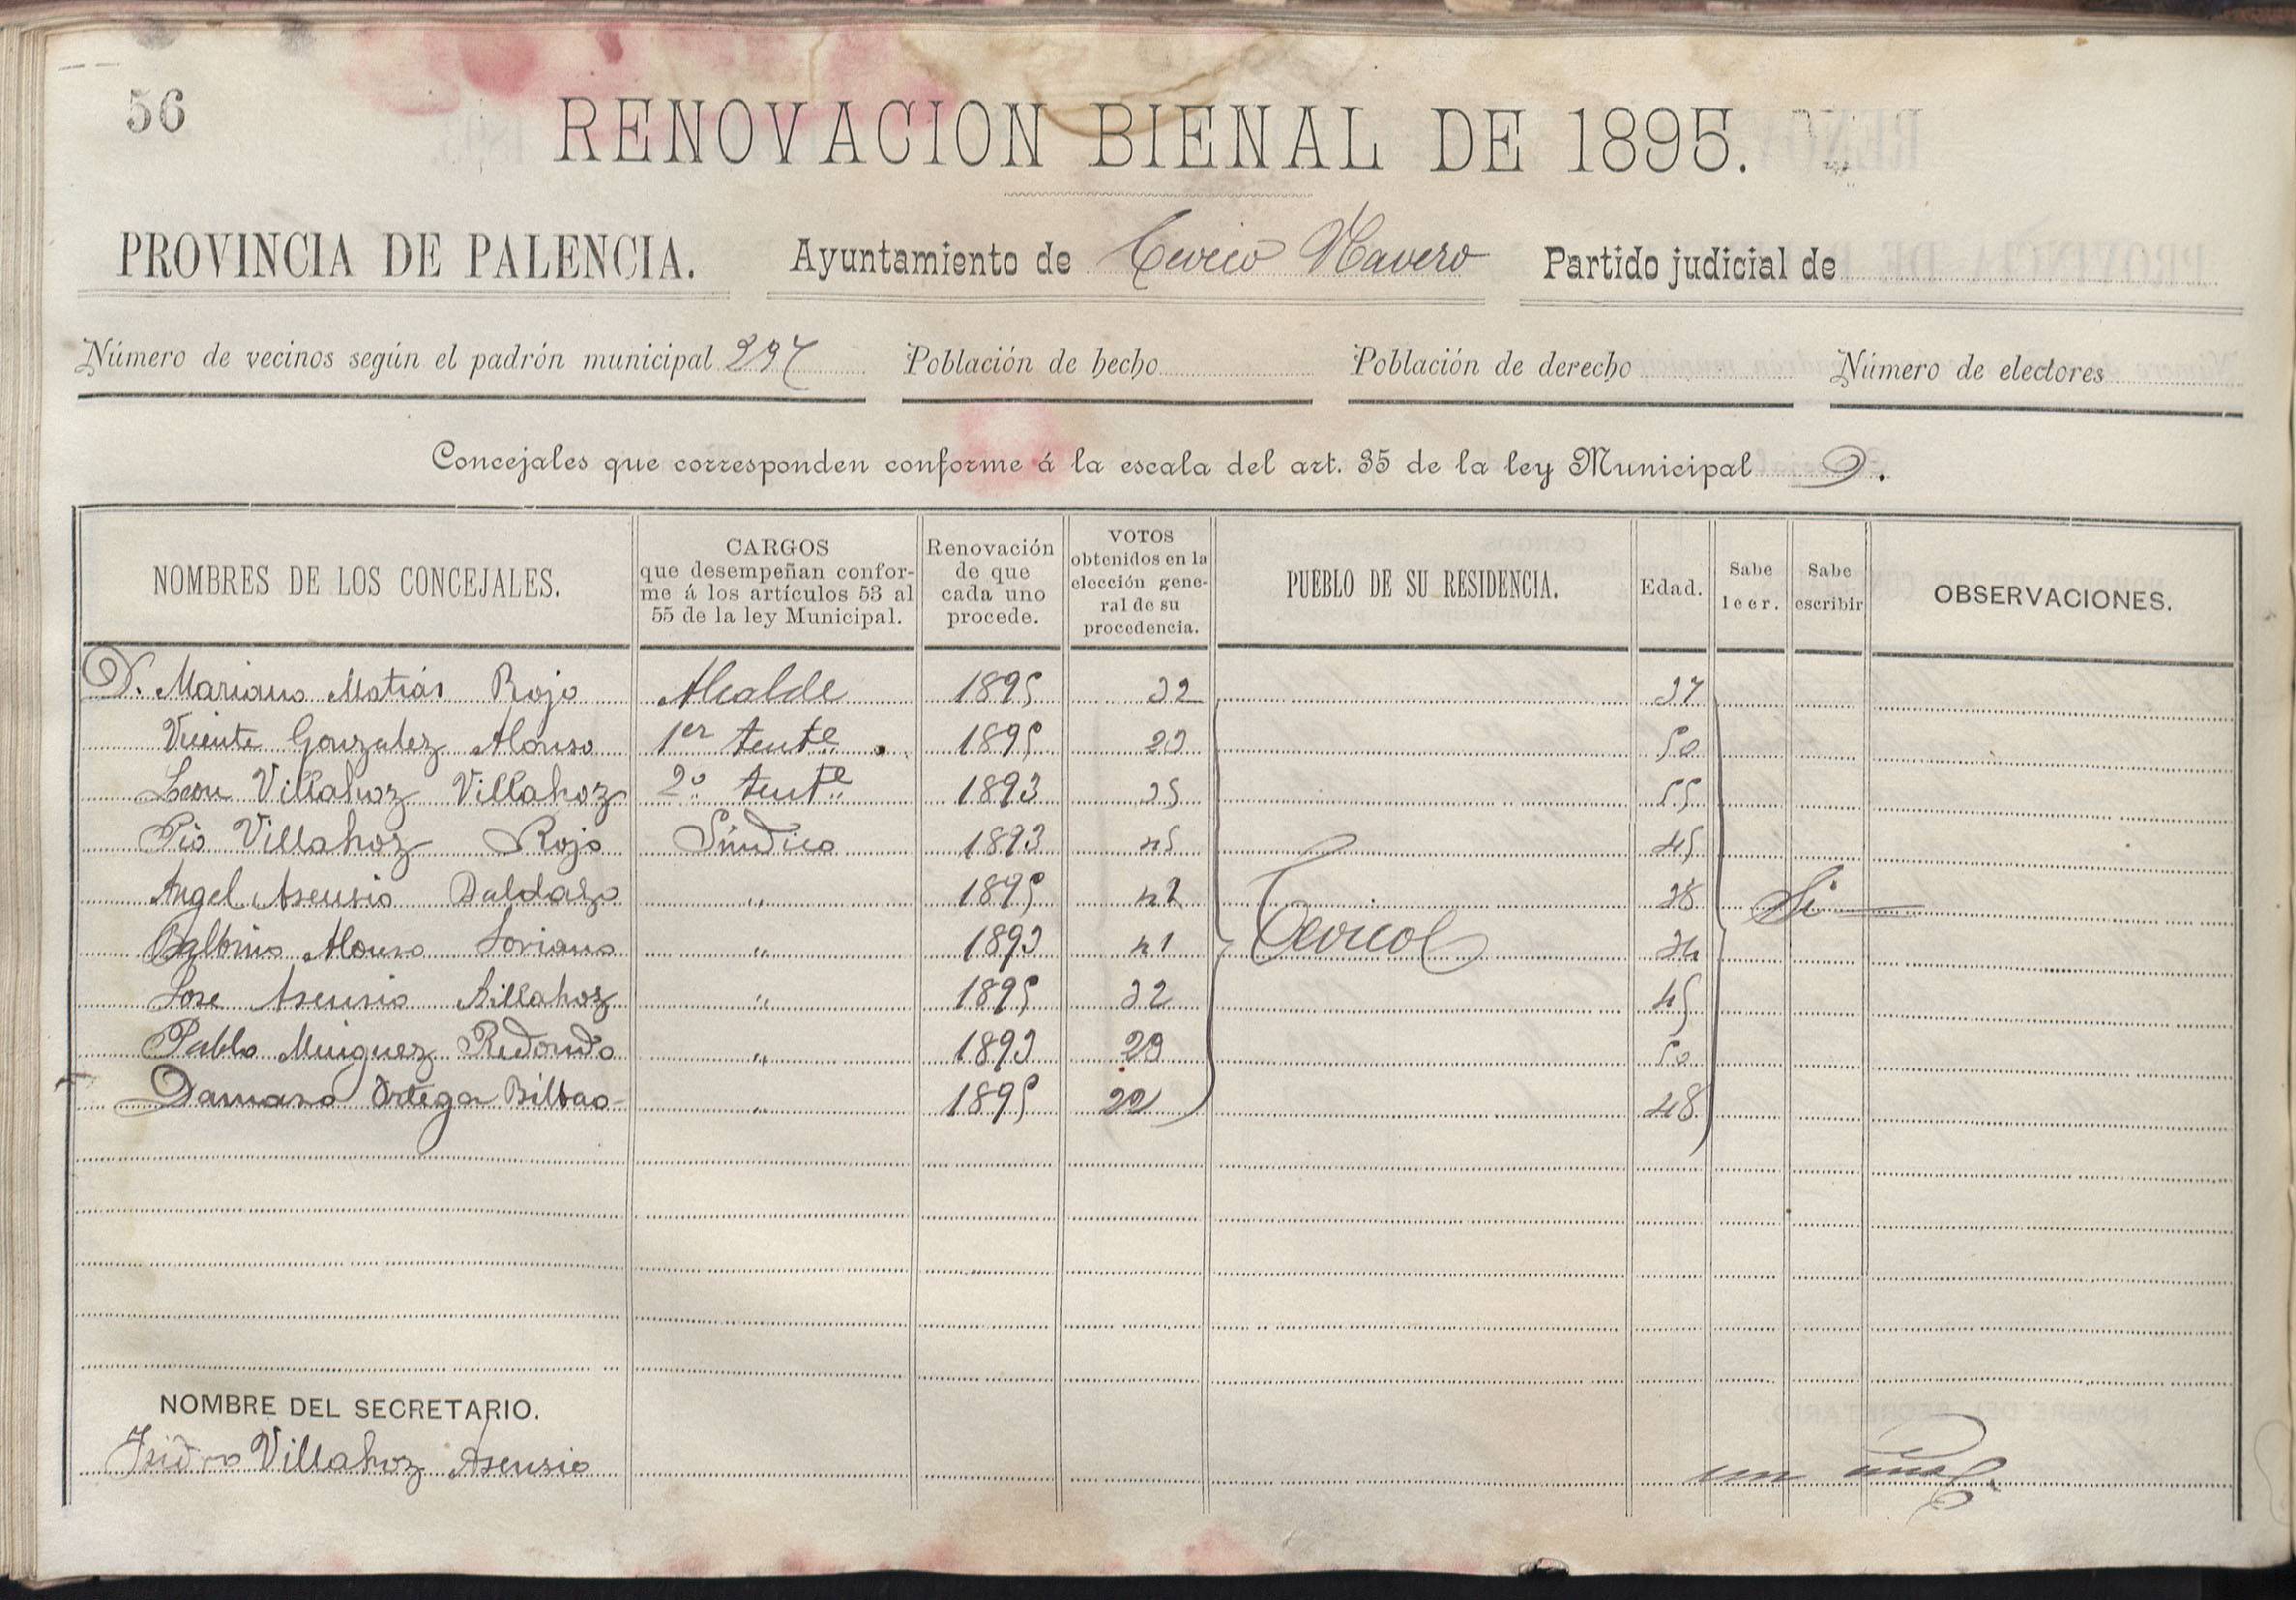 56
RENOVACION BIENAL DE 1895.
PROVINCIA DE PALENCIA. Ayuntamiento de Cevico Navero Partido judicial de
Número de vecinos según el padrón municipal 297 Población de hecho Población de derecho Número de electores
Concejales que corresponden conforme á la escala del art. 35 de la ley Municipal 9.
NOMBRES DE LOS CONCEJALES. CARGOS que desempeñan confor-me á los artículos 53 al 55 de la ley Municipal. Renovación de que cada uno procede. VOTOS obtenidos en la elección gene-ral de su procedencia. PUEBLO DE SU RESIDENCIA. Edad. Sabe leer. Sabe escribir OBSERVACIONES.
D. Mariano Matias Rojo Alcalde 1895 32 37
Vicente Gonzalez Alonso 1er tente. 1895 23 50
Leon Villahoz Villahoz 2º tente 1893 35 55
Pio Villahoz Rojo Síndico 1893 45 45
Angel Asensio " 1895 42 38 Si
Balbino Alonso Soriano " 1893 41 Cevico 34
Jose Asensio Villahoz " 1895 32 45
Pablo Minguez Redondo " 1893 29 50
Damaso Ortega Bilbao " 1895 22 48
NOMBRE DEL SECRETARIO.
Isidro Villahoz Asensio un año